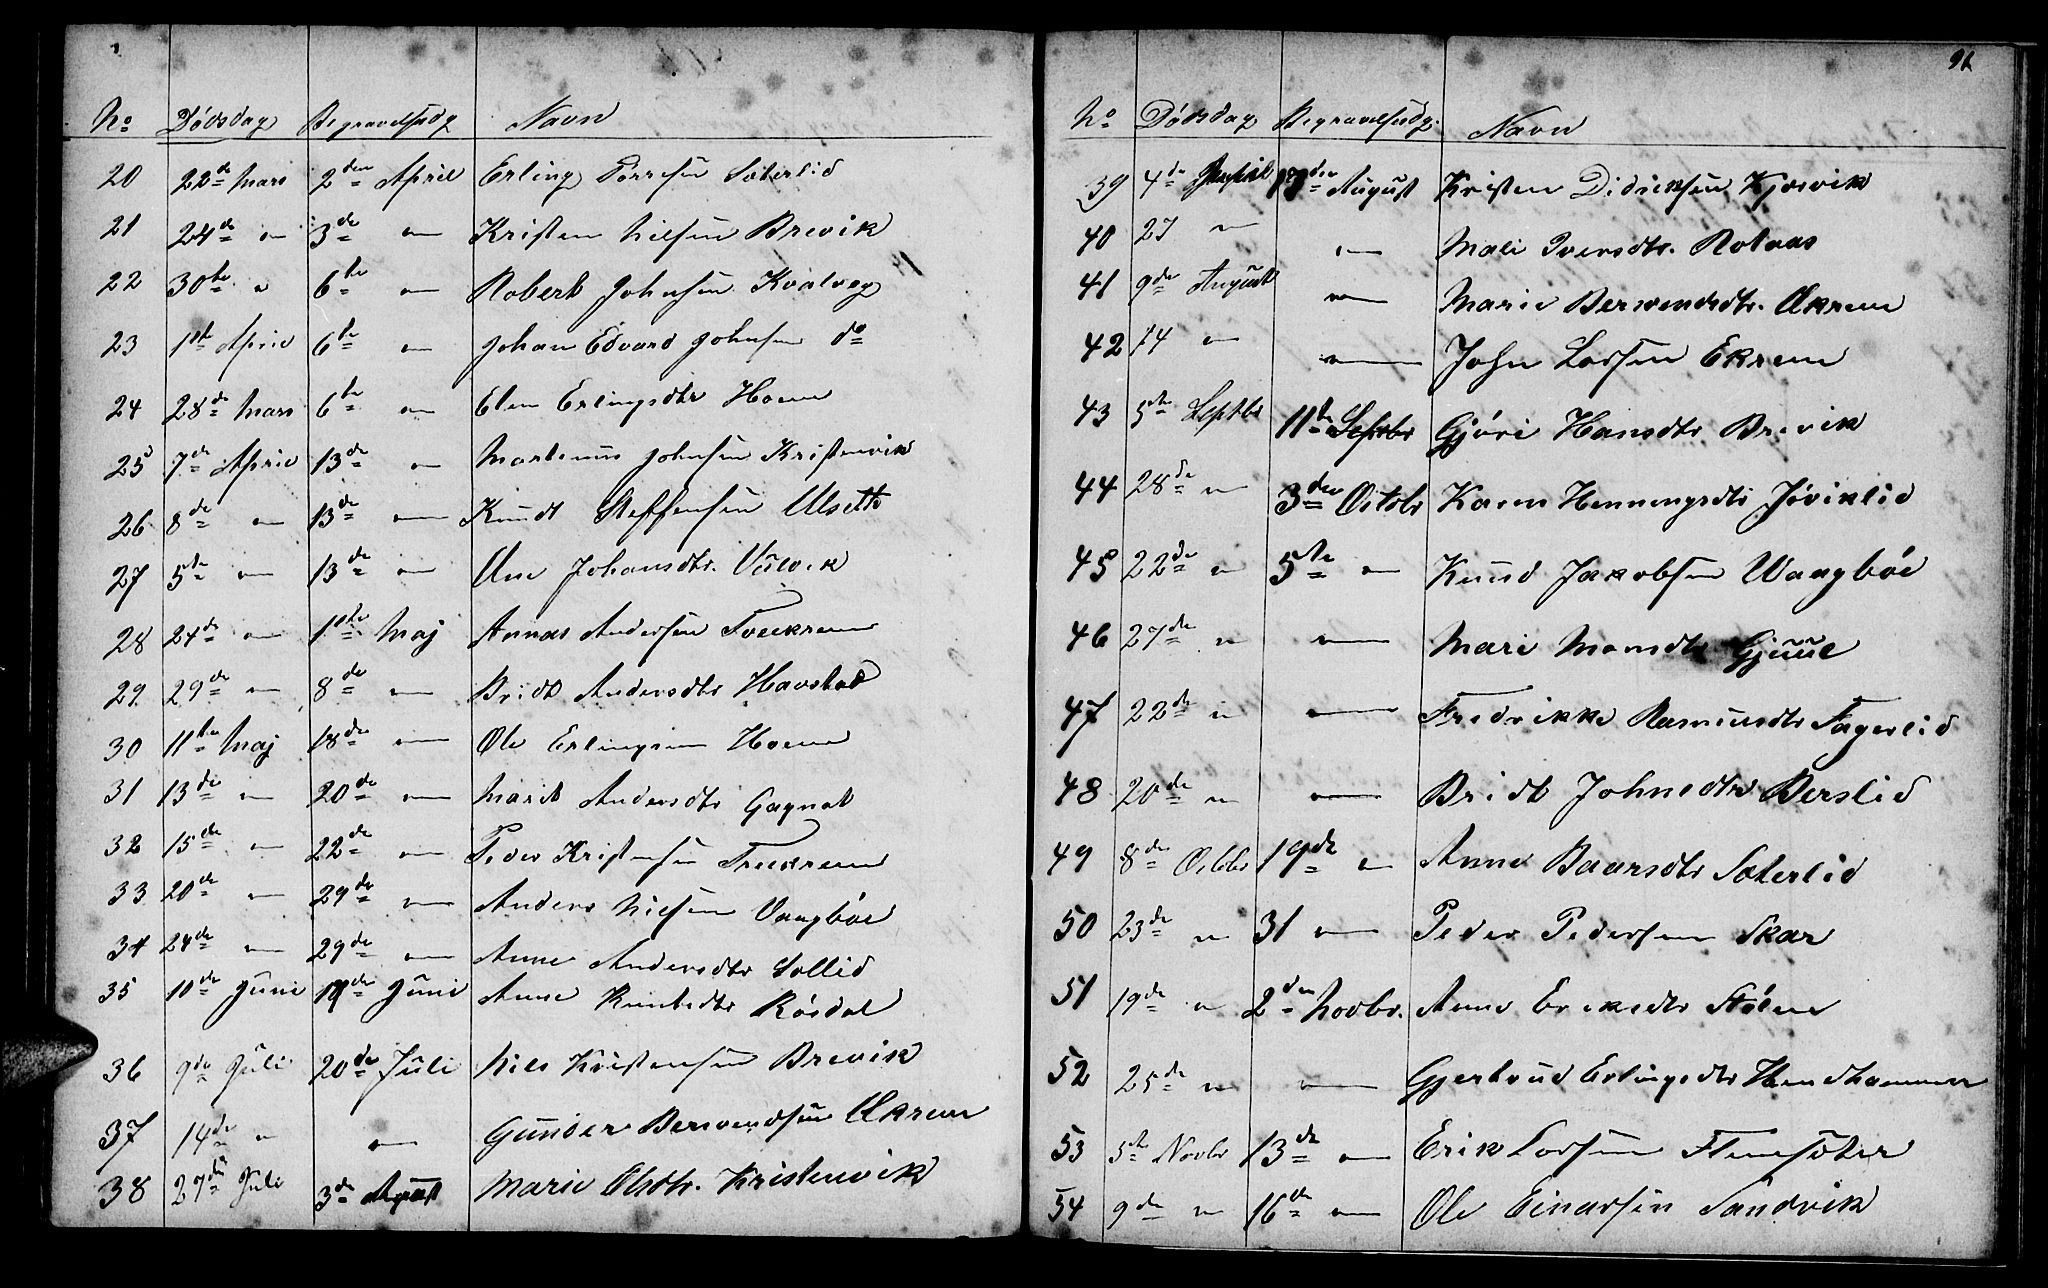 No Dødsdag Begravelsesdg Navn
20 22de Mars 2den April Erling Torresen Sæterlid
21 24de " 3de " Kristen Nielsen Brevik
22 30te " 6te " Robert Johnsen Kvalvåg
23 1ste April 6te " Johan Edvard Johnsen do
24 28de Mars 6te " Elen Erlingsdtr Hoem
25 7de April 13de " Martinus Johnsen Kristenvik
26 8de " 13de " Knudt Steffensen Ulseth
27 5te " 13de " Ane Johansdtr. Vulvik
28 24de " 1ste Maj Annas Andersen Tveekrem
29 29de " 8de " Bridt Andersdtr Havstad
30 11te Maj 18de " Ole Erlingsen Hoem
31 13de " 20de " Marit Andersdtr Gagnat
32 15de " 22de " Peder Kristensen Treekrem
33 20de " 29de " Anders Nielsen Vaagbøe
34 24de " 29de " Anne Andersdtr Sollid
35 10de Juni 19de Juni Anne Knutsdtr Røsdal
36 9de Juli 20de Juli Nils Kristensen Brevik
37 14de " " Gunder Berwendsen Ækrem
38 27de Juli 3de August Marie Olsdtr. Kristenvik
91
No Dødsdag Begravelsesdg. Navn
39 4de August Kristen Didriksen Kjørvik
40 27 " " Mali Iversdtr. Rolvaas
41 9de August " Marie Berwendsdtr. Ækrem
42 14 " " John Larsen Ekrem
43 5te Septbr 11te Septbr Gjøri Hansdtr Brevik
44 28de " 3den Octobr Karen Henningsdtr Jøviklid
45 22de " 5te " Knud Jakobsen Waagbøe
46 27de " " Mari Monsdtr Gjüül
47 22de " " Fredrikke Rasmusdtr Fagerlid
48 20de " " Bridt Johnsdtr Berslid
49 8de Octobr 19de " Anne Baarsdtr Sæterlid
50 23de " 31 " Peder Pedersen Skar
51 19de " 2den Novbr. Anne Eriksdtr Stølen
52 25de " " Gjertrud Erlingsdtr Hendhammer
53 5te Novbr 13de " Erik Larsen Flemsæter
54 9de " 16de " Ole Einarsen Sandvik